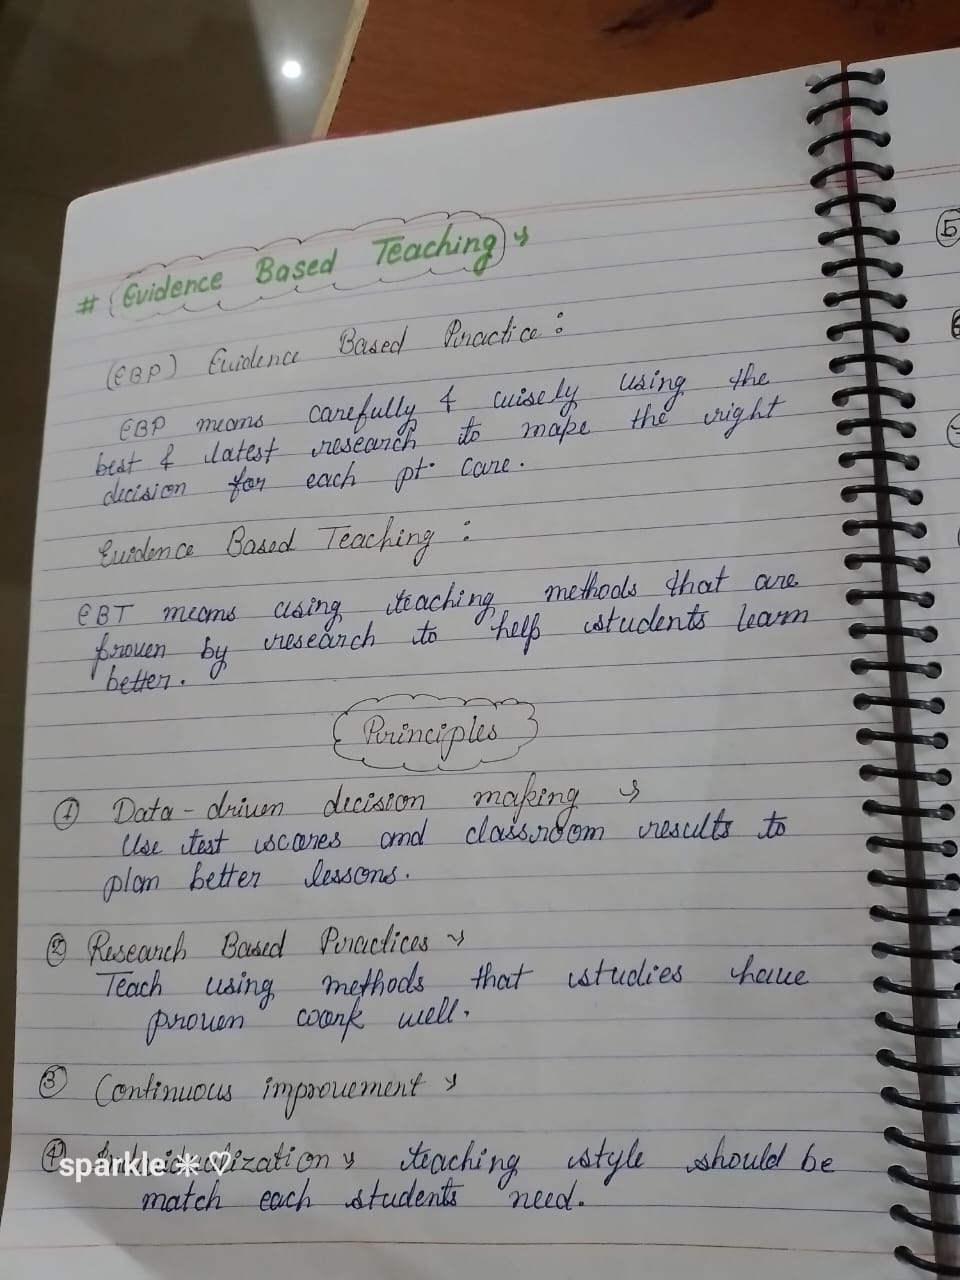 # Evidence Based Teaching
(EBP) Evidence Based Practice :
EBP means carefully & wisely using the
best & latest research to make the right
decision for each pt. care.
Evidence Based Teaching :
EBT means using teaching methods that are
proven by research to help students learn
better.
Principles
① Data-driven decision making
Use test scores and classroom results to
plan better lessons.
② Research Based Practices
Teach using methods that studies have
proven work well.
③ Continuous improvement
④ teaching style should be
match each students need.
sparkle ✳ ♡
5